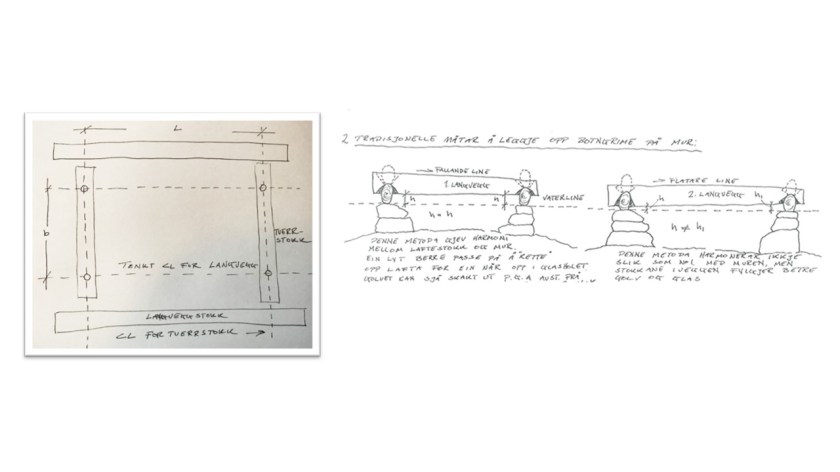 L
b
TVERR-
STOKK
TENKT CL FOR LANGVEGG
LANGVEGGSTOKK
CL FOR TVERRSTOKK
2 TRADISJONELLE MÅTAR Å LEGGJE OPP BOTNGRIME PÅ MUR:
FALLANDE LINE
1. LANGVEGG
h
h
VATERLINE
h = h
DENNE METODA GJEV HARMONI
MELLOM LAFTESTOKK OG MUR.
EIN LYT BERRE PASSE PÅ Å "RETTE"
OPP LAFTA FØR EIN NÅR OPP I GLASHOLET.
GOLVET KAN SJÅ SKAKT UT P.G.A AUST.
FLATARE LINE
2. LANGVEGG
h
h₁
h ≠ h₁
DENNE METODA HARMONERAR IKKJE
SLIK SOM NO1. MED MUREN, MEN
STOKKANE I VEGGEN FYLGJER BETRE
GOLV OG GLAS